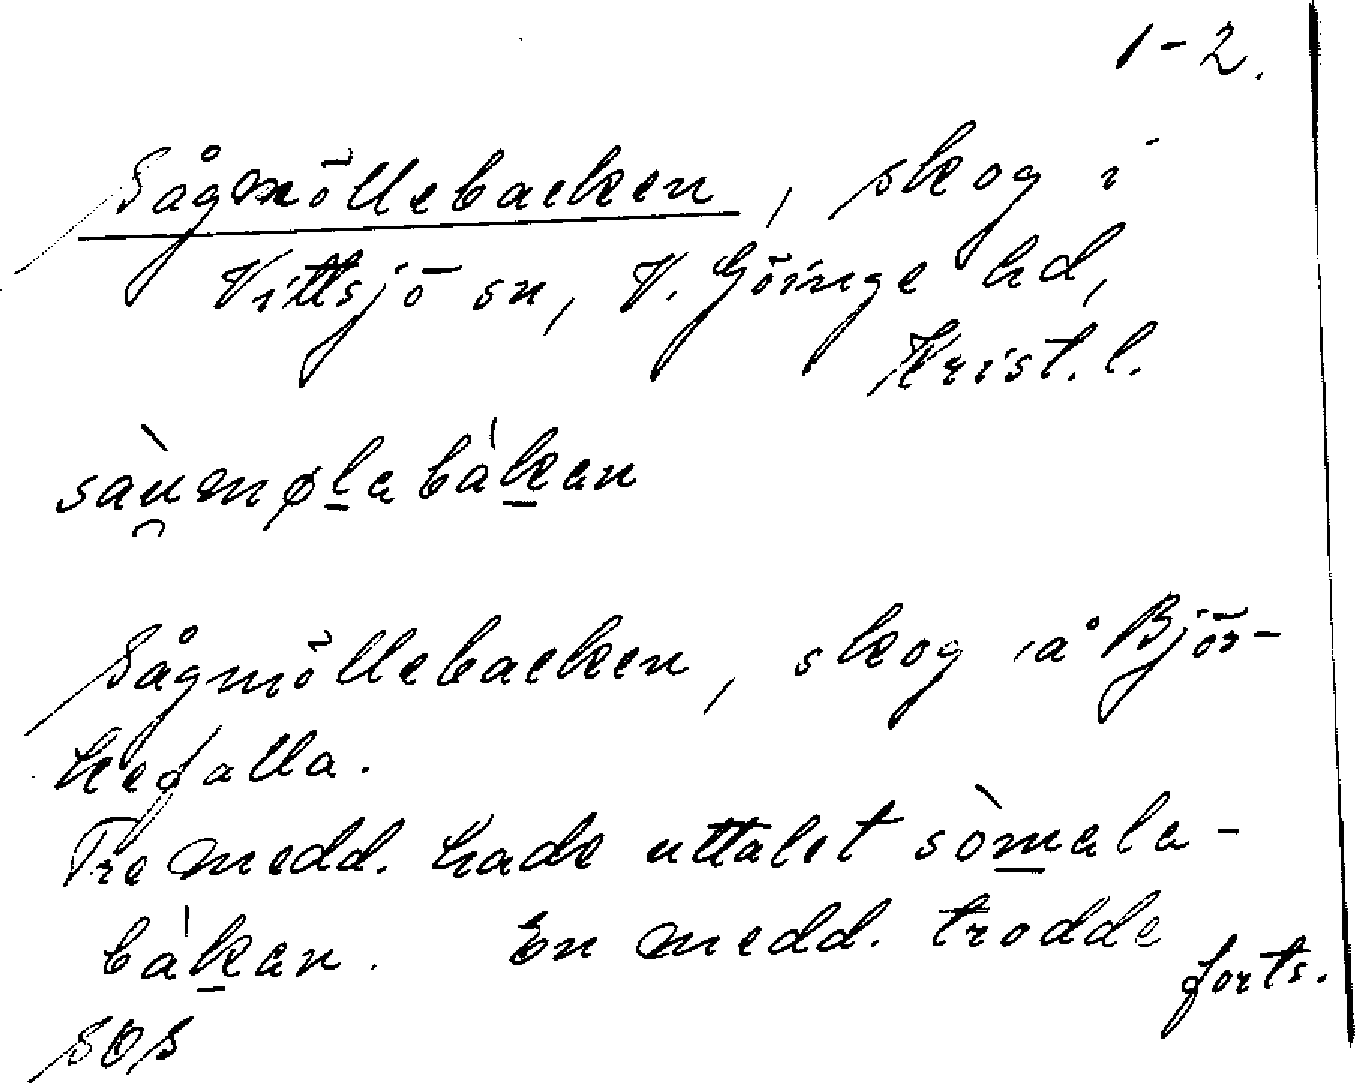 1-2.
Sågmöllebacken, skog i
Vittsjö sn, V. Göinge hd,
Krist. l.
sàu̯møl̲abákan
Sågmöllebacken, skog å Björ-
kefalla.
Tre medd. hade uttalet sòm̲ala-
bák̲an. En medd. trodde
forts.
SOS